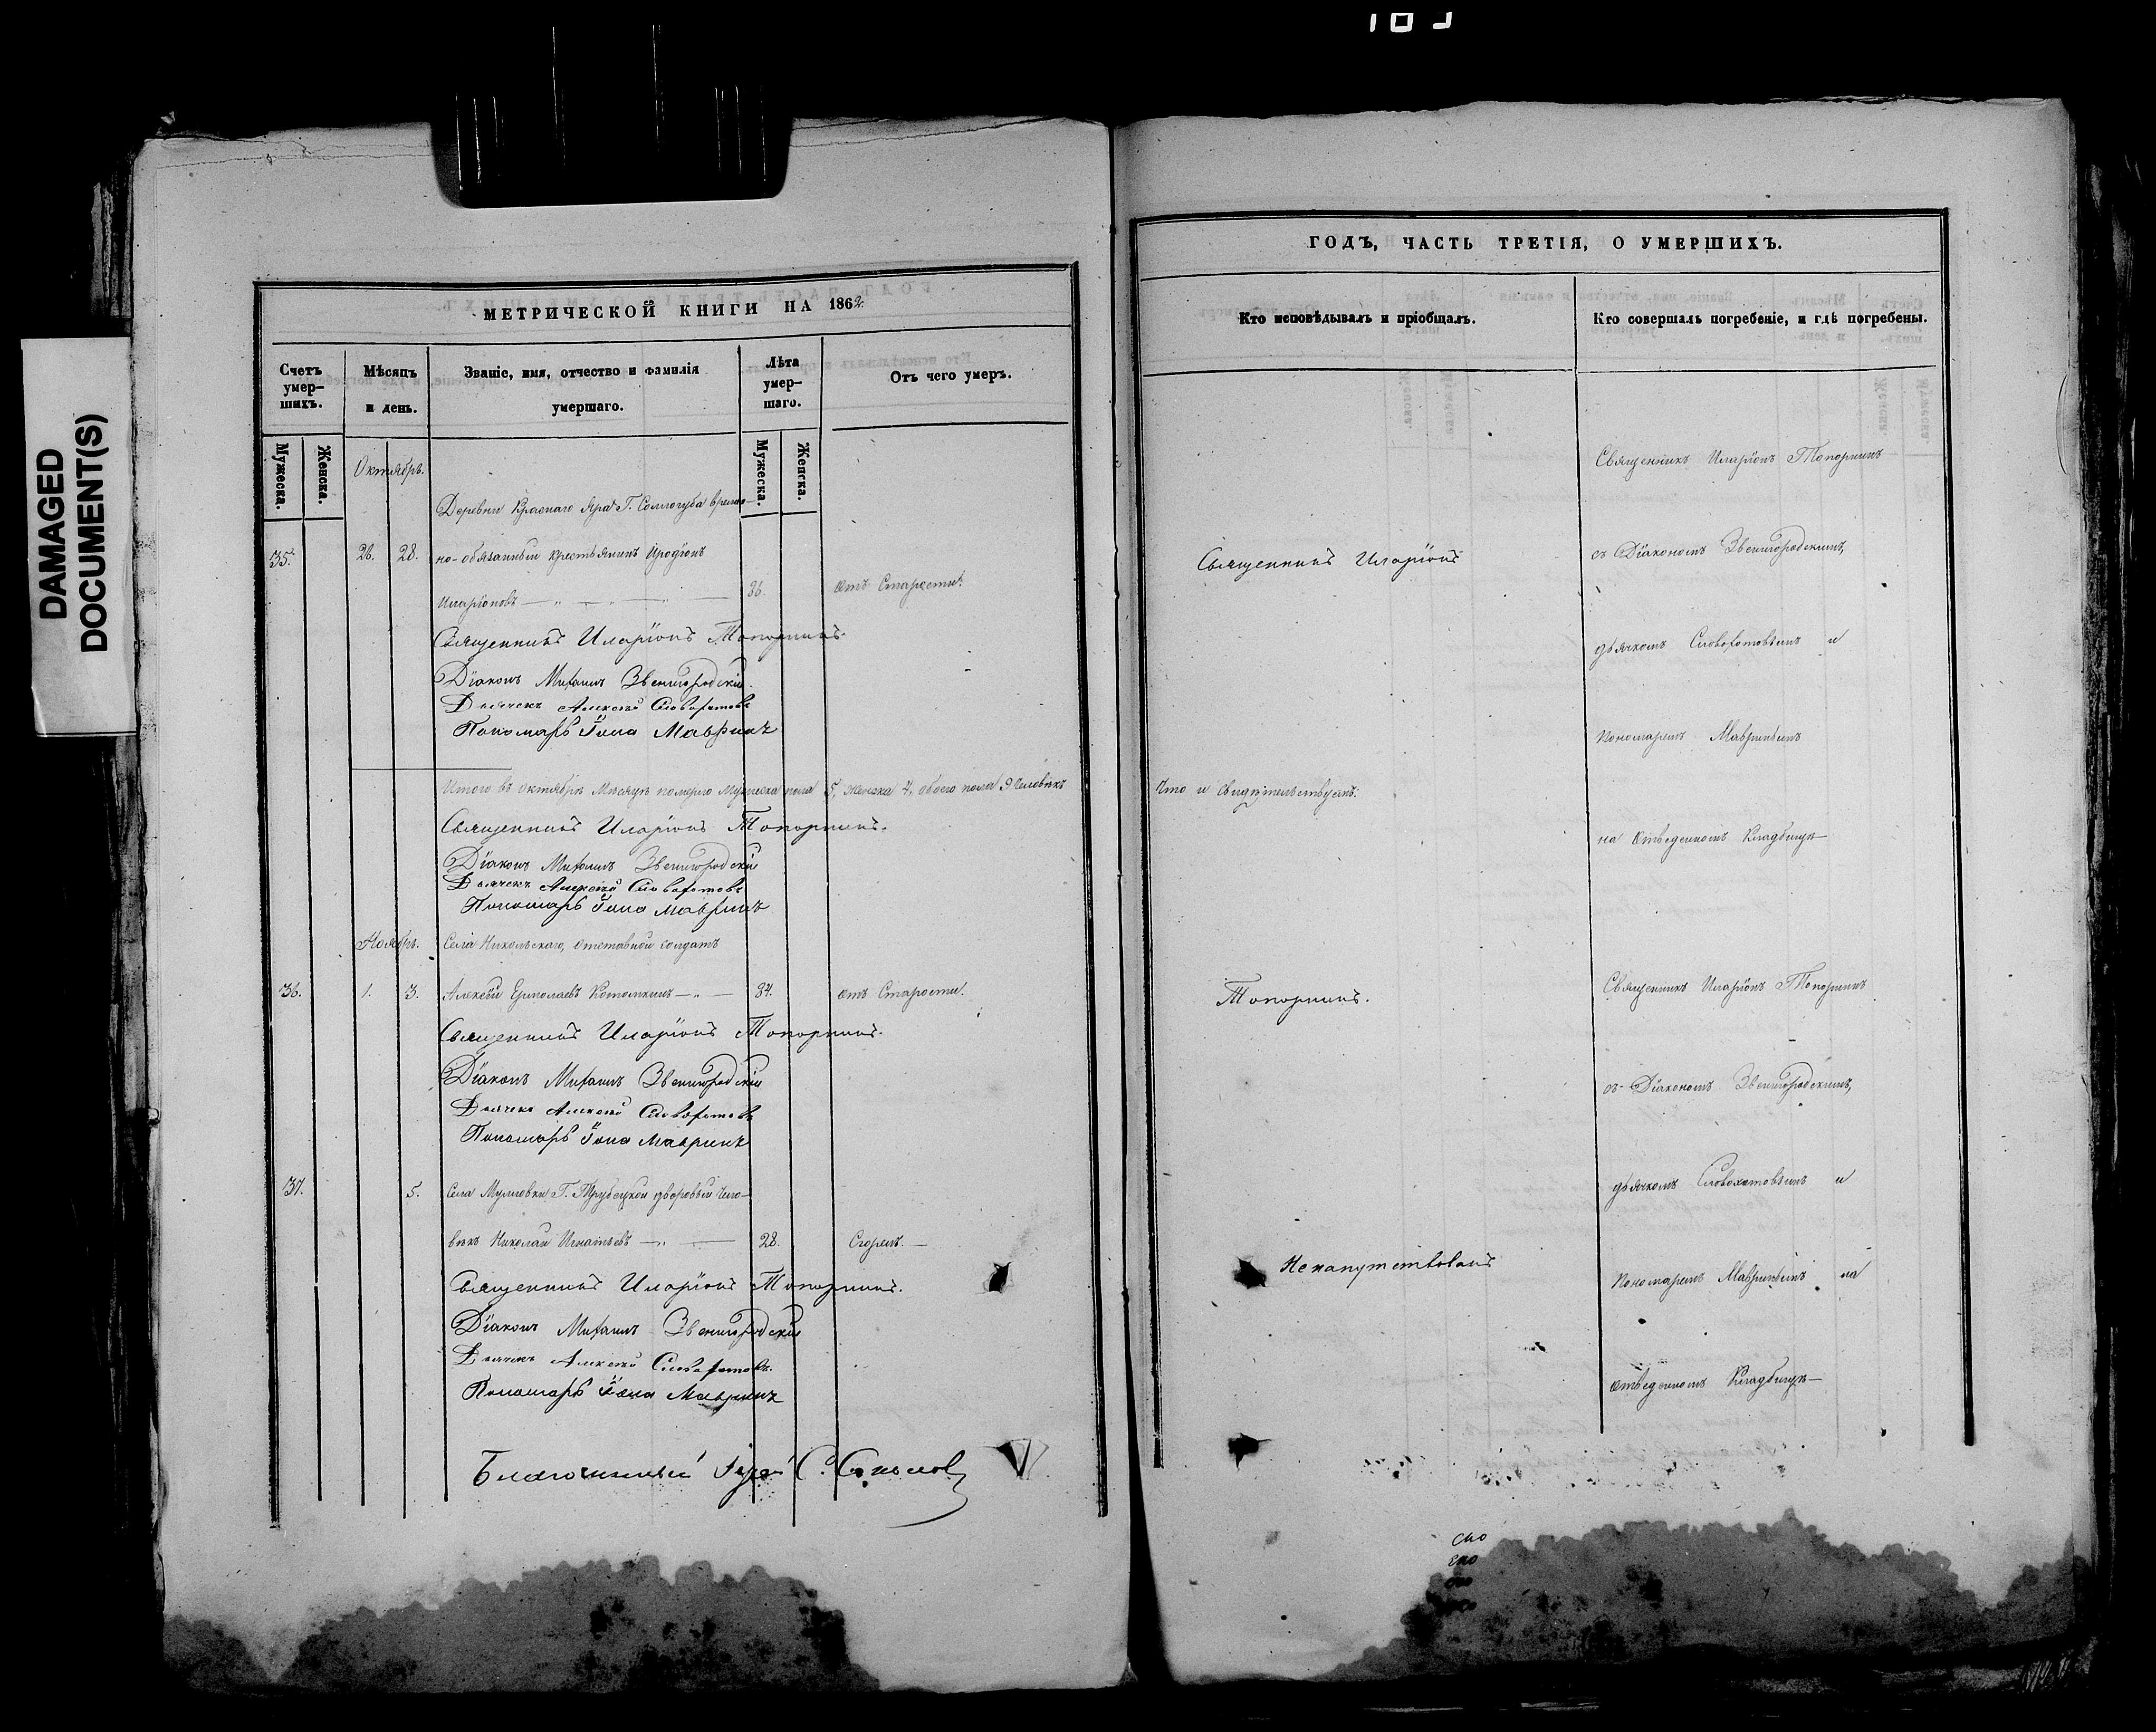 DAMAGED
DOCUMENT(S)
МЕТРИЧЕСКОЙ КНИГИ НА 1862
Счетъ умер-шихъ.
Мѣсяцъ и день.
Званіе, имя, отчество и фамилія умершаго.
Лѣта умер-шаго.
Отъ чего умеръ.
Мужеска.
Женска.
Мужеска.
Женска.
Октябрь.
Деревни Краснаго Яра Г. Соллогуба времен-
35. 26. 28. но-обязанный крестьянинъ Иродіонъ
Иларіоновъ 86. отъ Старости.
Священникъ Иларіонъ Топорнинъ.
Діаконъ Михаилъ Звенигородскій
Дьячекъ Алексѣй Словохотовъ
Пономарь Іона Мавринъ
Итого въ Октябрѣ Мѣсяцѣ померло Мужеска пола 5, женска 4, обоего пола 9 Человѣкъ
Священникъ Иларіонъ Топорнинъ.
Діаконъ Михаилъ Звенигородскій
Дьячекъ Алексѣй Словохотовъ
Пономарь Іона Мавринъ
Ноябрь. Села Никольскаго, отставной солдатъ
36. 1. 3. Алексѣй Ермолаевъ Котомкинъ 84. отъ Старости.
Священникъ Иларіонъ Топорнинъ.
Діаконъ Михаилъ Звенигородскій
Дьячекъ Алексѣй Словохотовъ
Пономарь Іона Мавринъ
37. 5. Села Муловки Г. Трубецкой дворовый чело-
вѣкъ Николай Игнатьевъ 28. Сгорѣлъ.
Священникъ Иларіонъ Топорнинъ.
Діаконъ Михаилъ Звенигородскій
Дьячекъ Алексѣй Словохотовъ.
Пономарь Іона Мавринъ
Благочинный Іерей С.
ГОДЪ, ЧАСТЬ ТРЕТІЯ, О УМЕРШИХЪ.
Кто исповѣдывалъ и пріобщалъ.
Кто совершалъ погребеніе, и гдѣ погребены.
Священникъ Иларіонъ Топорнинъ
Священникъ Иларіонъ
съ Діакономъ Звенигородскимъ,
дьячкомъ Словохотовымъ и
пономаремъ Мавринымъ
Что и свидѣтельствуемъ:
на отведенномъ Кладбищѣ
Топорнинъ.
Священникъ Иларіонъ Топорнинъ
съ Діакономъ Звенигородскимъ,
дьячкомъ Словохотовымъ и
Ненапутствованъ
пономаремъ Мавринымъ на
отведенномъ Кладбищѣ